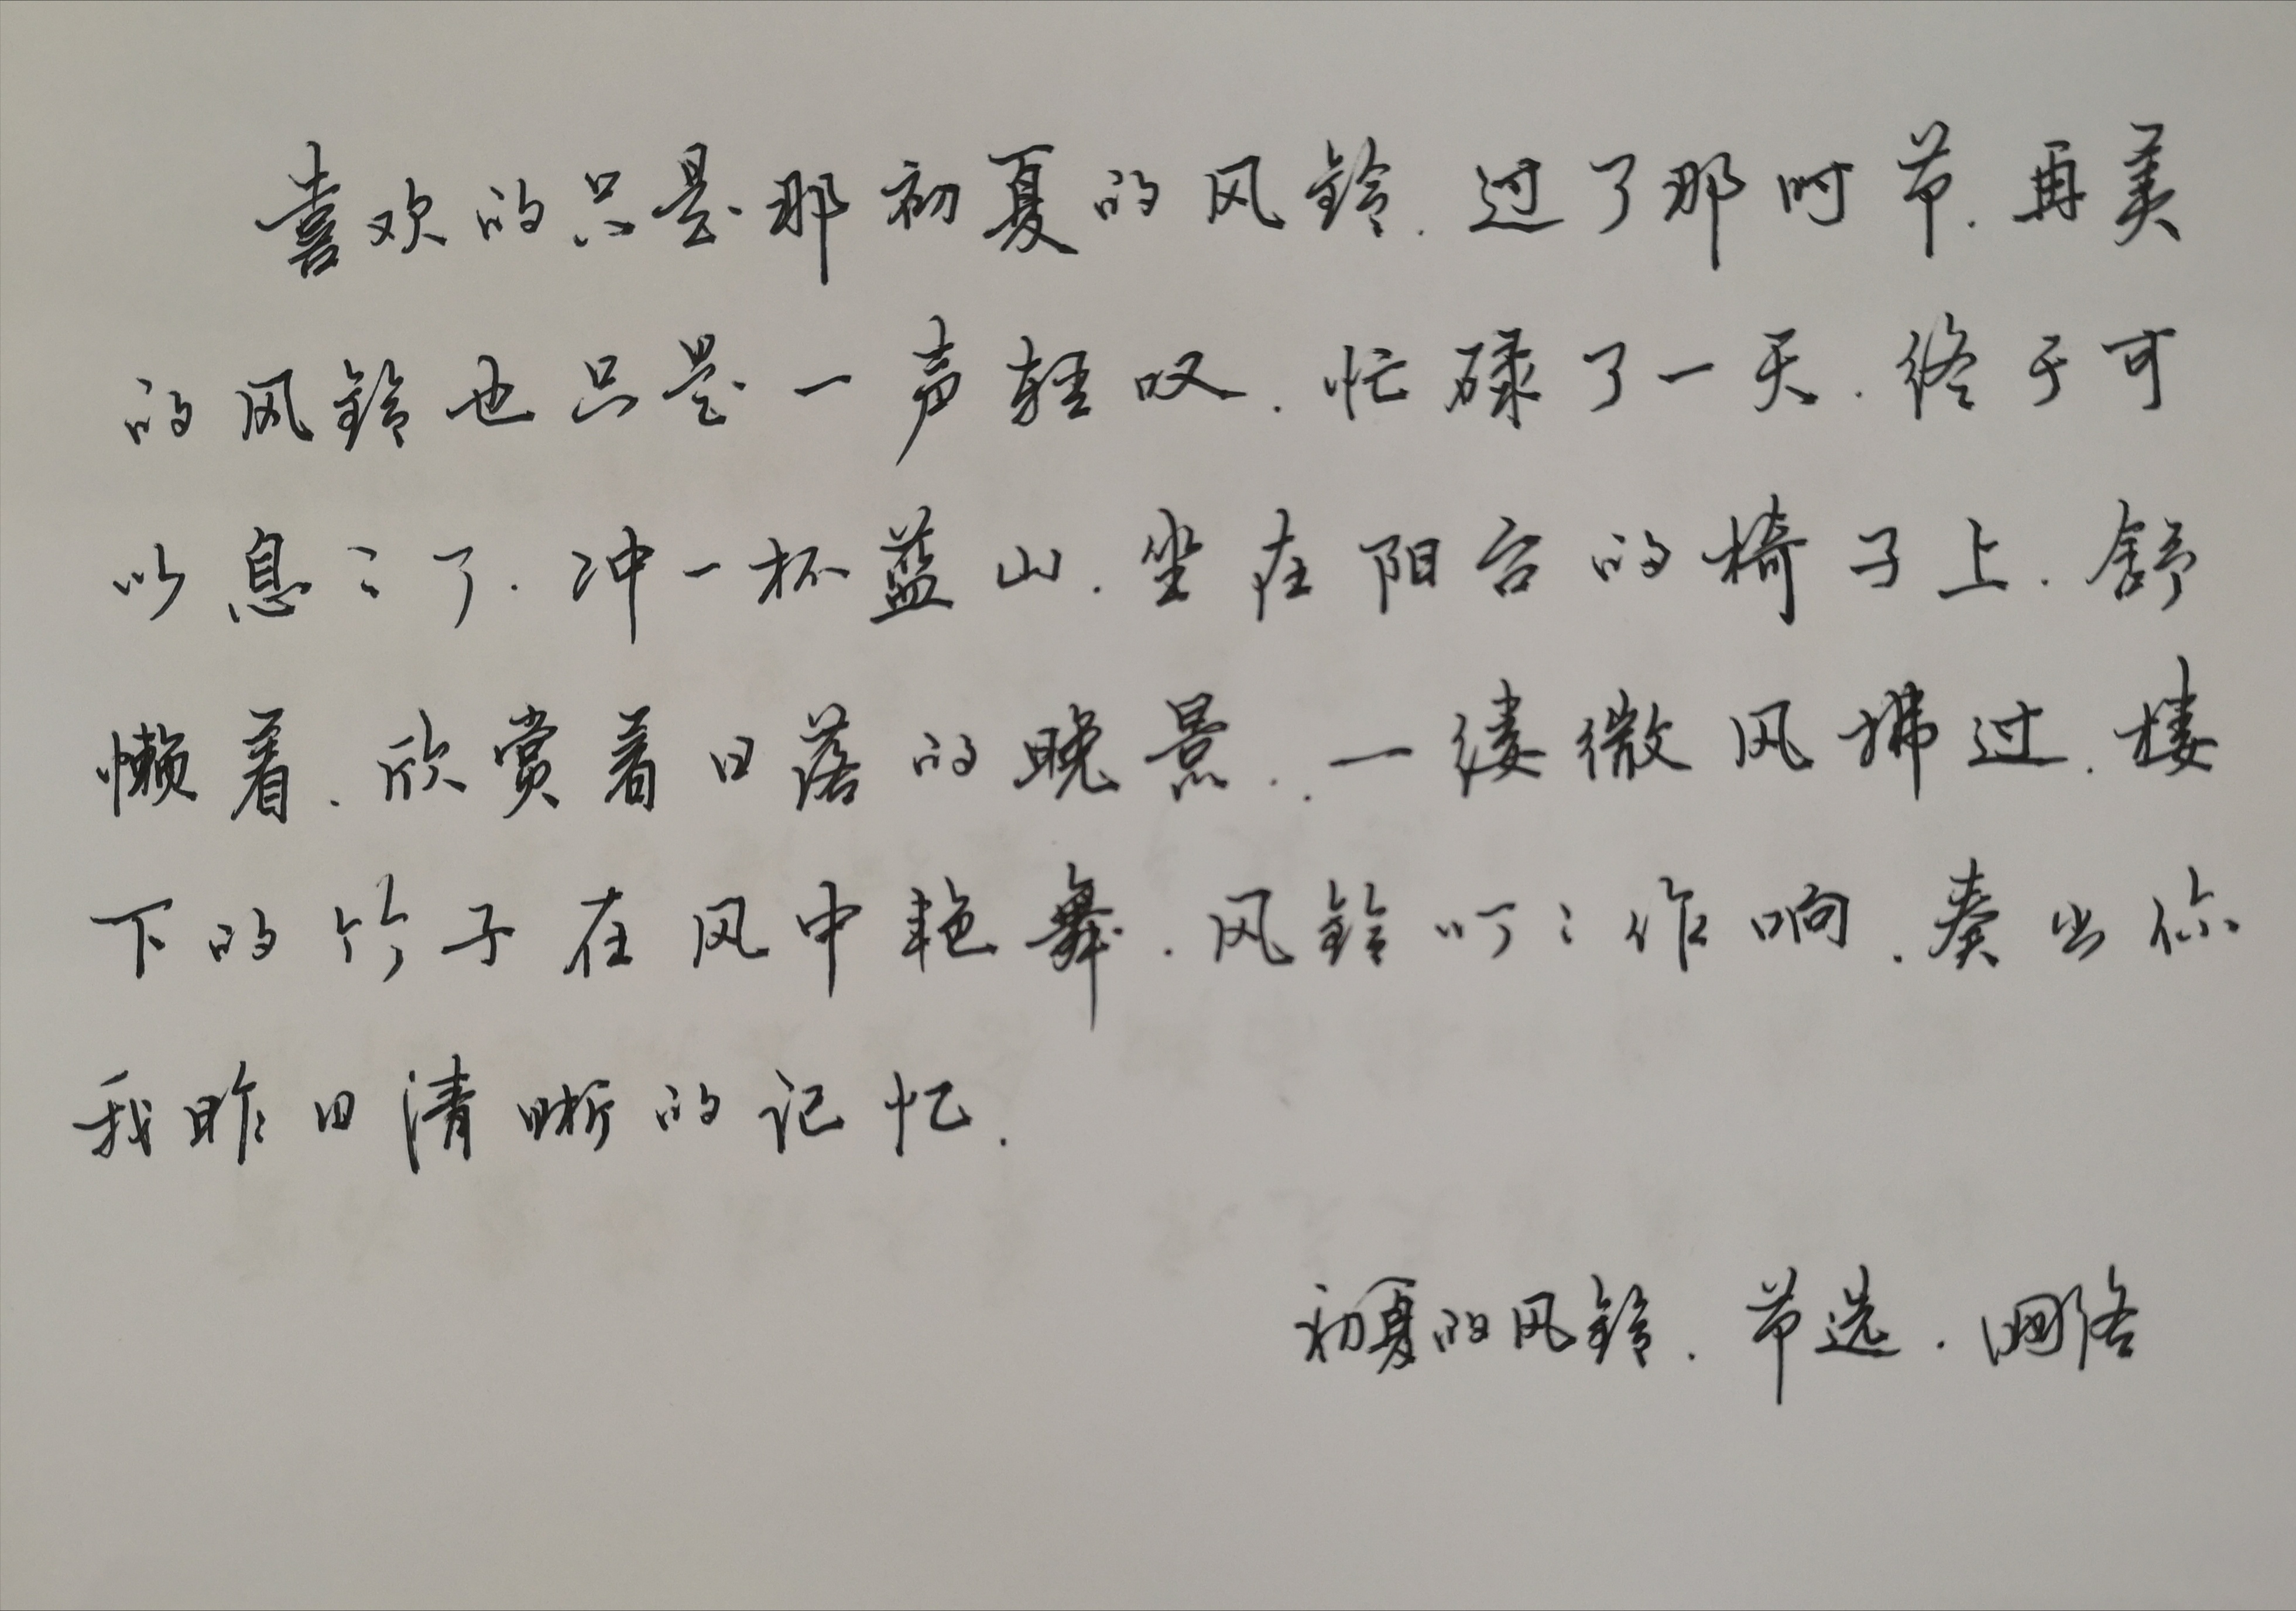 喜欢的只是那初夏的风铃.过了那时节.再美
的风铃也只是一声轻叹.忙碌了一天.终于可
以息々了.冲一杯蓝山.坐在阳台的椅子上.舒
懒着.欣赏着日落的晚景..一缕微风拂过.楼
下的竹子在风中艳舞.风铃叮々作响.奏出你
我昨日清晰的记忆.
初夏的风铃.节选.网络